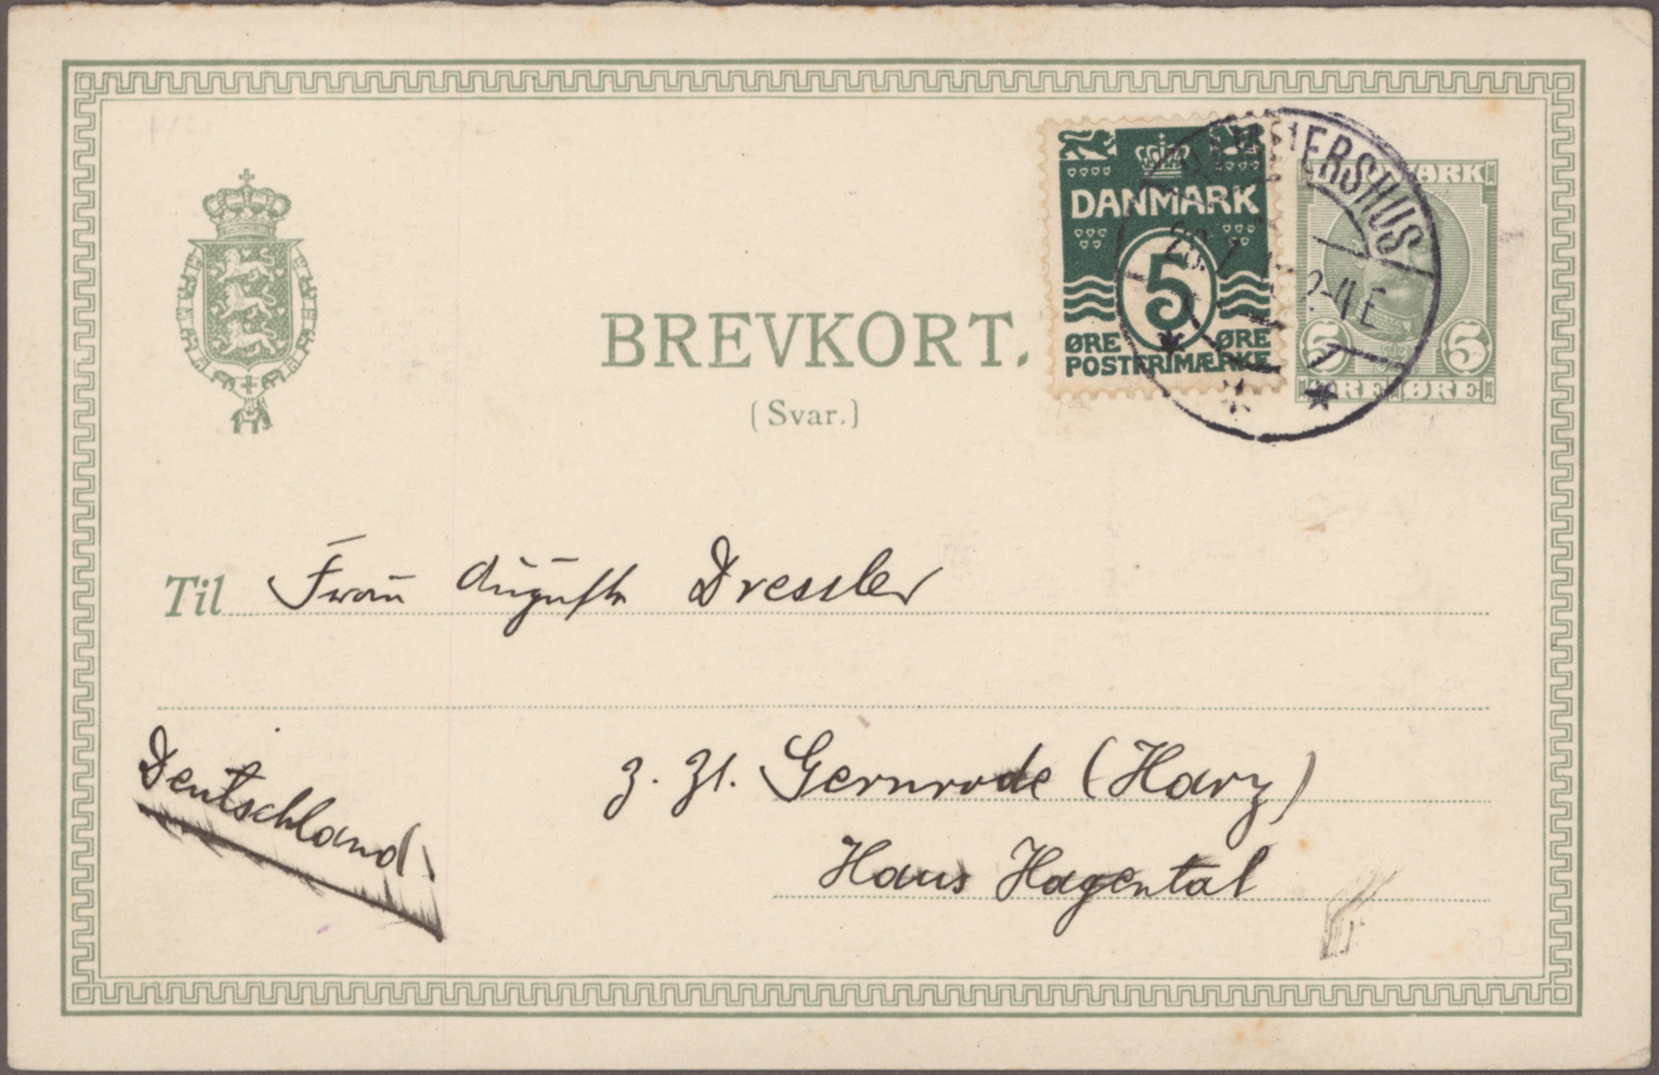 BREVKORT.
(Svar.)
DANMARK
5
ØRE ØRE
POSTFRIMÆRKE
HAMMERSHUS
2-4 E
5 5
ØRE ØRE
Til Frau Auguste Dressler
Deutschland.
z. Zt. Gernrode (Harz)
Haus Hagental